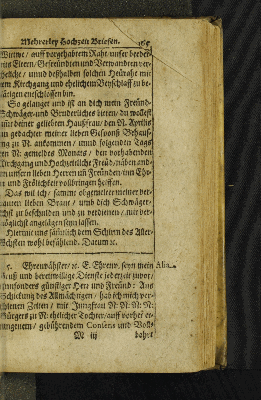 Mehrerley Hochzeit Brieffen.
Wittwe / auff vorgehabtem Raht unser beeder-
seits Eltern / Gefreundten und Verwandten ver-
ehelicht / unnd deßhalben solchen Heüraht mit
dem Kirchgang und ehelichem Beyschlaff zu be-
stätigen entschlossen bin.
So gelanget und ist an dich mein Freünd-
Schwäger- und Bruderliches bitten / du wollest
mit deiner geliebten Haußfrau / den N. Aprilis
in gedachter meiner lieben Gesponß Behaus-
ung zu N. ankommen / unnd folgenden Tags
den N: gemeldes Monats / den vorhabenden
Kirchgang und Hochzeitliche Freüd / neben and-
ern unsern lieben Herren uñ Freünden / inn Ehr-
en und Frölichkeit vollbringen helffen.
Das wil ich / sammt obgemelter meiner ver-
trauten lieben Braut / umb dich Schwäger-
lichst zu beschulden und zu verdienen / mir ver-
möglichst angelägen seyn lassen.
Hiemit uns sämtlich dem Schirm des Aller-
höchsten wohl befählend. Datum ꝛc.
5. Ehrenvähster / ꝛc. E. Ehrenv. seyn mein
Alia.
Gruß und bereitwillige Dienste jederzeit zuvor /
insonders günstiger Herr und Freünd: Auß
Schickung des Allmächtigen / hab ich mich ver-
schienen Zeiten / mit Jungfrau N. N. N. N.
Bürgers zu N: ehelicher Tochter / auff vorher er-
langtenem / gebührendem Consens und Voll-
M iij
bahrt